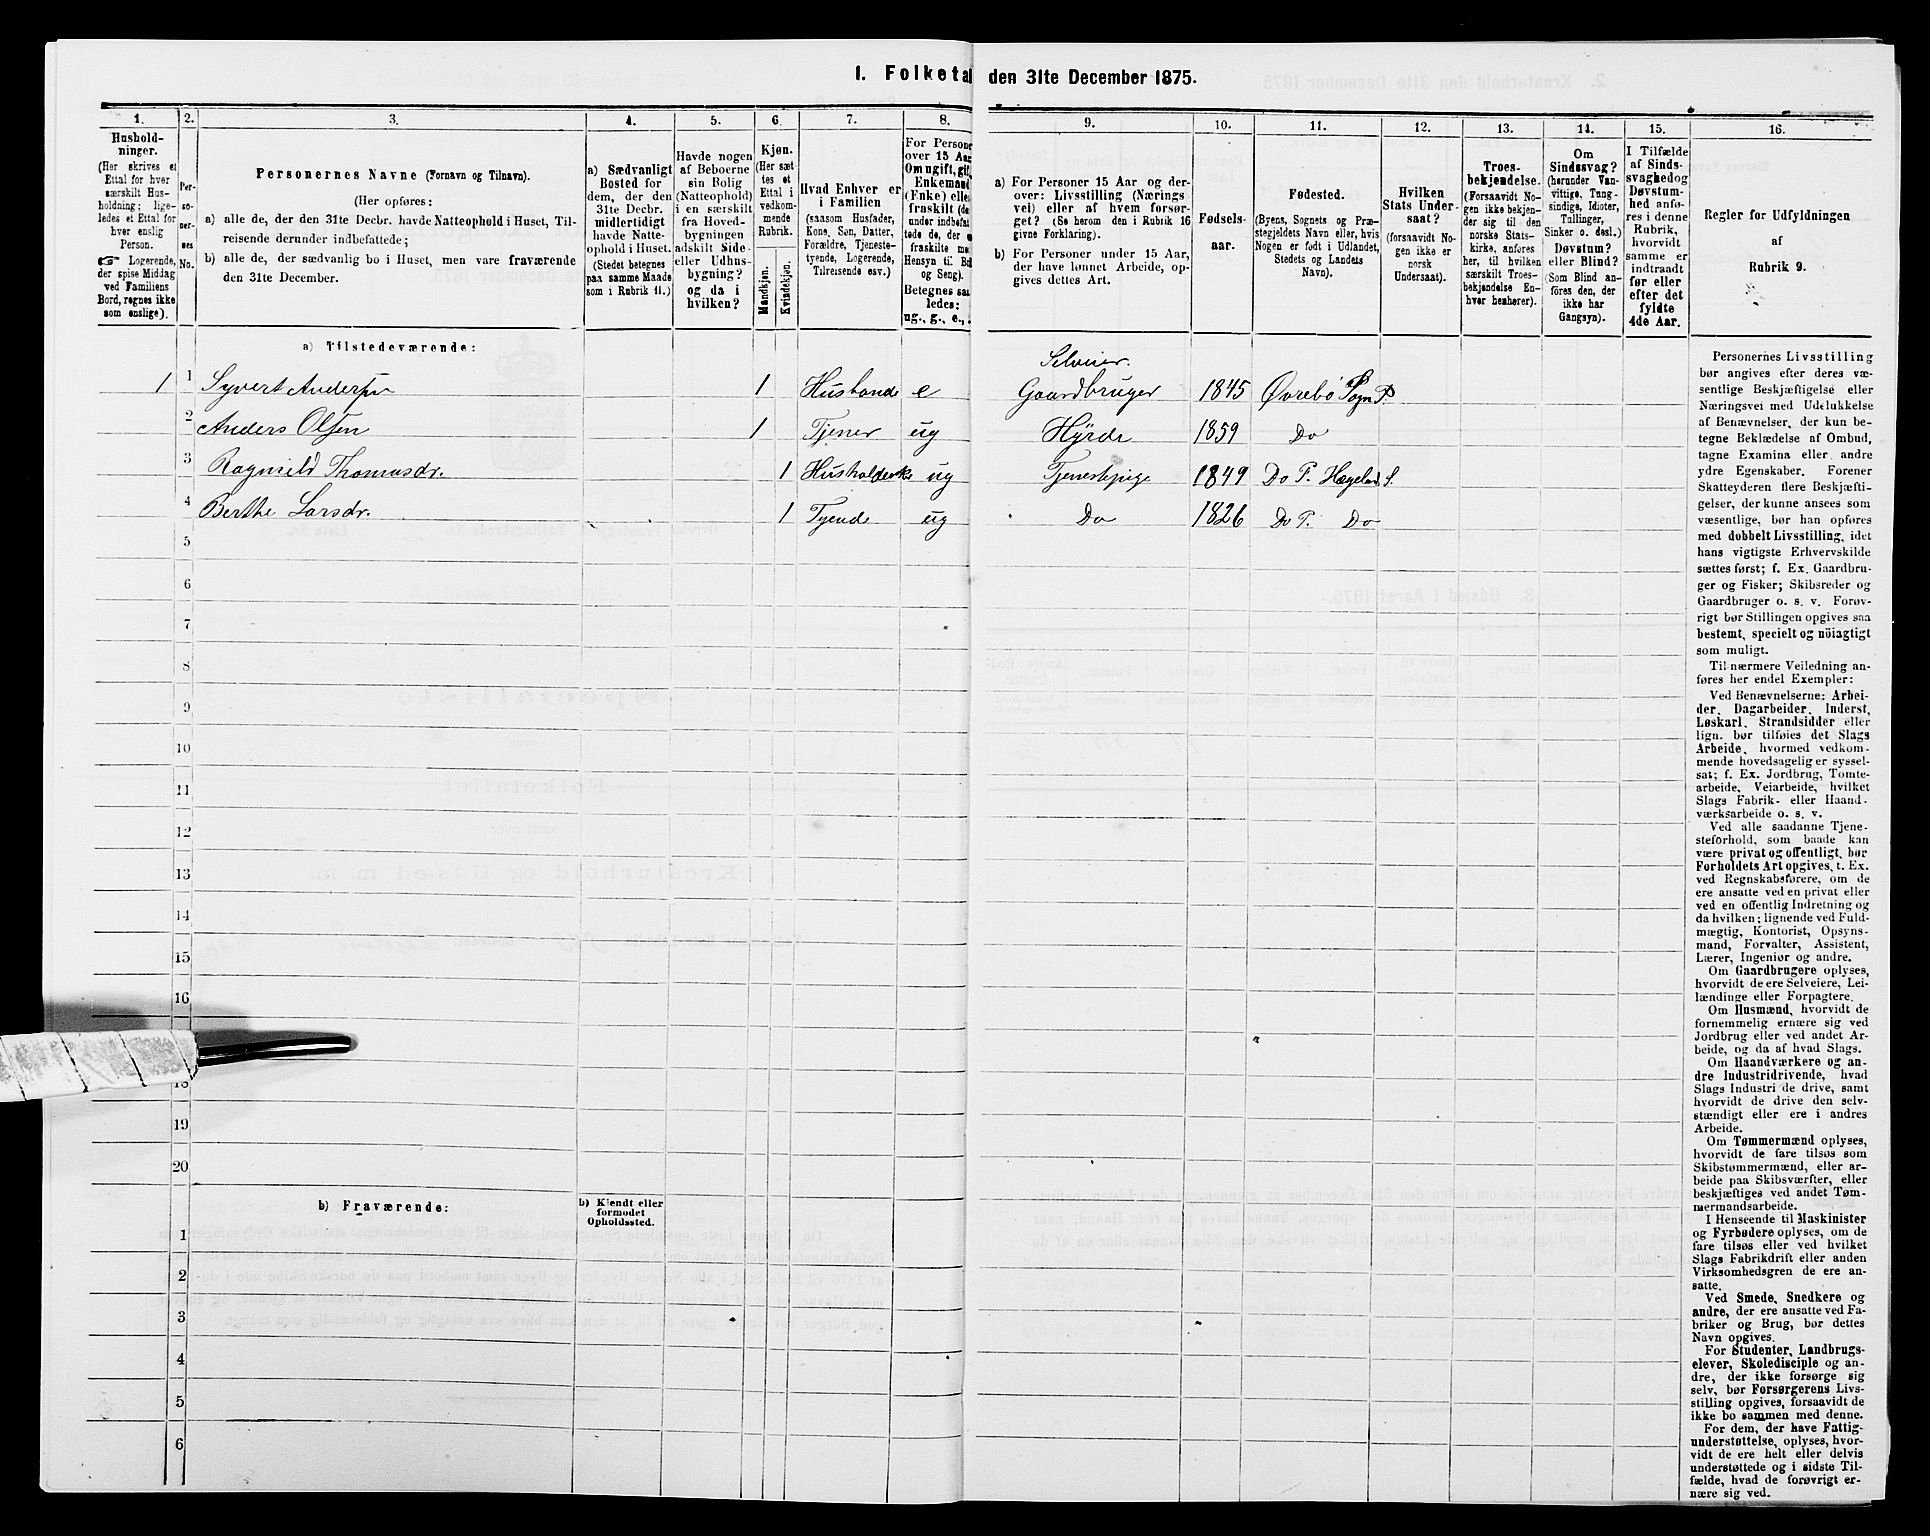 1. Folketal den 31te December 1875.
1. 2. 3. 4. 5. 6. 7. 8. 9. 10. 11. 12. 13. 14. 15. 16.
Hushold-
ninger.
(Her skrives et
Ettal for hver
særskilt Hus-
holdning; lige-
ledes et Ettal for
hver enslig
Person.
☞ Logerende,
der spise Middag
ved Familiens
Bord, regnes ikke
som enslige).
Per-
so-
ner-
nes
No.
Personernes Navne (Fornavn og Tilnavn).
(Her opføres:
a) alle de, der den 31te Decbr. havde Natteophold i Huset, Til-
reisende derunder indbefattede;
b) alle de, der sædvanlig bo i Huset, men vare fraværende
den 31te December.
a) Sædvanligt
Bosted for
dem, der den
31te Decbr.
midlertidigt
havde Natte-
ophold i Huset.
(Stedet betegnes
paa samme Maade
som i Rubrik 11.)
Havde nogen
af Beboerne
sin Bolig
(Natteophold)
i en særskilt
fra Hoved-
bygningen
adskilt Side-
eller Udhus-
bygning?
og da i
hvilken?
Kjøn.
(Her sæt-
tes et
Ettal i
vedkom-
mende
Rubrik.
Mandkjøn.
Kvindekjøn.
Hvad Enhver er
i Familien
(saasom Husfader,
Kone, Søn, Datter,
Forældre, Tjeneste-
tyende, Logerende,
Tilreisende osv.)
For Persone
over 15 Aar
Om ugift, gif
Enkemand
(Enke) elle
fraskilt (de
under indbefat
tede de, der e
fraskilte me
Hensyn til Bo
og Seng).
Betegnes saa
ledes:
ug., g., e.,
a) For Personer 15 Aar og der-
over: Livsstilling (Nærings
vei) eller af hvem forsør-
get? (Se herom den i Rubrik 16
givne Forklaring).
b) For Personer under 15 Aar,
der have lønnet Arbeide, op-
gives dettes Art.
Fødsels-
aar.
Fødested.
(Byens, Sognets og Præ-
stegjeldets Navn eller, hvis
Nogen er født i Udlandet,
Stedets og Landets
Navn).
Hvilken
Stats Under-
saat?
(forsaavidt No-
gen ikke er
norsk
Undersaat).
Troes-
bekjendelse.
(Forsaavidt No-
gen ikke bekjen-
der sig til den
norske Stats-
kirke, anføres
her, til hvilken
særskilt Troes-
bekjendelse En-
hver henhører).
Om
Sindssvag?
(herunder Van-
vittige, Tung-
sindige, Idioter,
Tullinger,
Sinker o. desl.)
Døvstum?
eller Blind?
(Som Blind an-
føres den, der
ikke har
Gangsyn).
I Tilfælde
af Sinds-
svaghed og
Døvstum-
hed anfø-
res i denne
Rubrik,
hvorvidt
samme er
indtraadt
før eller
efter det
fyldte
4de Aar.
Regler for Udfyldningen
af
Rubrik 9.
a) Tilstedeværende:
Selveier.
1 1 Syvert Andersen 1 Husbonde e Gaardbruger 1845 Øvrebø Sogn P.
2 Anders Olsen 1 Tjener ug Hyrde 1859 Do
3 Ragnild Thomasdr. 1 Husholderske ug Tjenestepige 1849 Do P. Hægeland S.
4 Berthe Larsdr. 1 Tyende ug Do 1826 Do P. Do
5
6
7
8
9
10
11
12
13
14
15
16
18
19
20
b) Fraværende:
b) Kjendt eller
formodet
Opholdssted.
1
2
3
4
5
6
Personernes Livsstilling
bør angives efter deres væ-
sentlige Beskjæftigelse eller
Næringsvei med Udelukkelse
af Benævnelser, der kun be-
tegne Beklædelse af Ombud,
tagne Examina eller andre
ydre Egenskaber. Forener
Skatteyderen flere Beskjæfti-
gelser, der kunne ansees som
væsentlige, bør han opføres
med dobbelt Livsstilling, idet
hans vigtigste Erhvervskilde
sættes først; f. Ex. Gaardbru-
ger og Fisker; Skibsreder og
Gaardbruger o. s. v. Forøv-
rigt bør Stillingen opgives saa
bestemt, specielt og nöiagtigt
som muligt.
Til nærmere Veiledning an-
føres her endel Exempler:
Ved Benævnelserne: Arbei-
der, Dagarbeider, Inderst,
Løskarl, Strandsidder eller
lign. bør tilføies det Slags
Arbeide, hvormed vedkom-
mende hovedsagelig er syssel-
sat; f. Ex. Jordbrug, Tomte-
arbeide, Veiarbeide, hvilket
Slags Fabrik- eller Haand-
værksarbeide o. s. v.
Ved alle saadanne Tjene-
steforhold, som baade kan
være privat og offentligt, bør
Forholdets Art opgives, t. Ex.
ved Regnskabsførere, om de
ere ansatte ved en privat eller
ved en offentlig Indretning og
da hvilken; lignende ved Fuld-
mægtig, Kontorist, Opsyns-
mand, Forvalter, Assistent,
Lærer, Ingeniør og andre.
Om Gaardbrugere oplyses,
hvorvidt de ere Selveiere, Lei-
lændinge eller Forpagtere.
Om Husmænd, hvorvidt de
fornemmelig ernære sig ved
Jordbrug eller ved andet Ar-
beide, og da af hvad Slags.
Om Haandværkere og an-
dre Industridrivende, hvad
Slags Industri de drive, samt
hvorvidt de drive den selv-
stændigt eller ere i andres
Arbeide.
Om Tømmermænd oplyses,
hvorvidt de fare tilsøs som
Skibstømmermænd, eller ar-
beide paa Skibsværfter, eller
beskjæftiges ved andet Tøm-
mermandsarbeide.
I Henseende til Maskinister
og Fyrbødere oplyses, om de
fare tilsøs eller ved hvilket
Slags Fabrikdrift eller anden
Virksomhedsgren de ere an-
satte.
Ved Smede, Snedkere og
andre, der ere ansatte ved Fa-
briker og Brug, bør dettes
Navn opgives.
For Studenter, Landbrugs-
elever, Skoledisciple og an-
dre, der ikke forsørge sig
selv, bør Forsørgerens Livs-
stilling opgives, forsaavidt de
ikke bo sammen med denne.
For dem, der have Fattig-
understøttelse, oplyses, hvor-
vidt de ere helt eller delvis
understøttede og i sidste Til-
fælde, hvad de forøvrigt er-
nære sig ved.